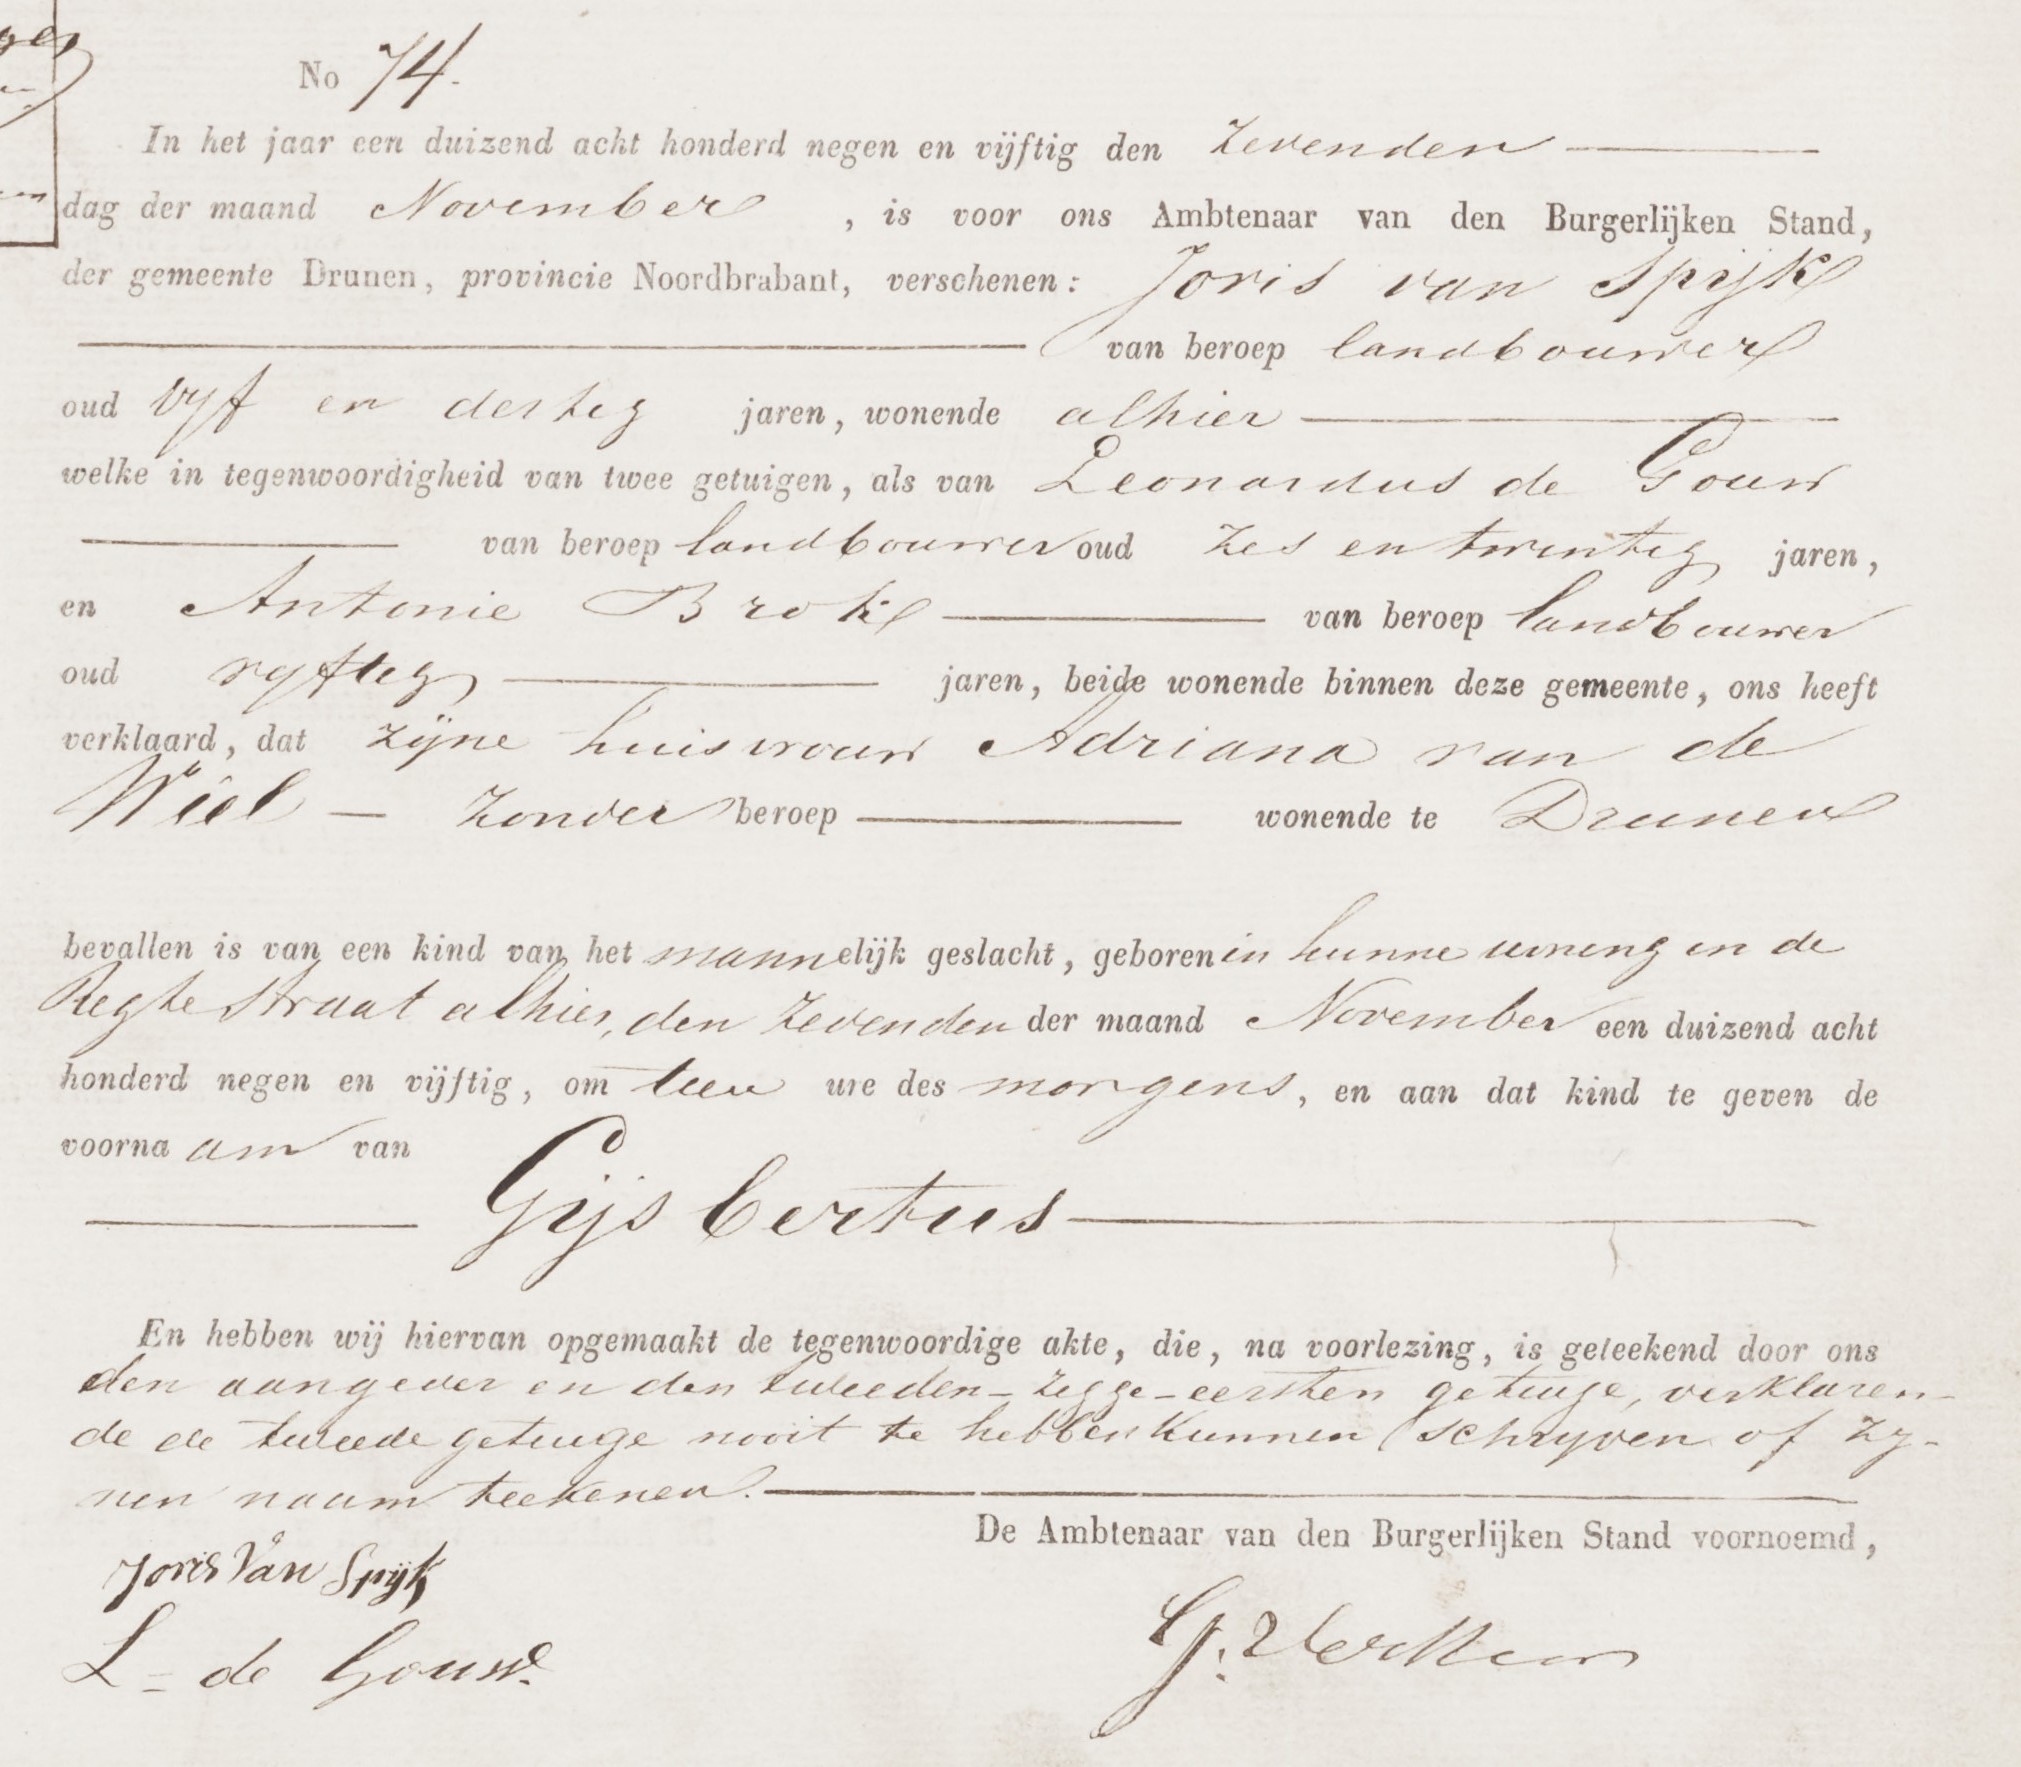 No 74.
In het jaar een duizend acht honderd negen en vijftig den zevenden
dag der maand November , is voor ons Ambtenaar van den Burgerlijken Stand,
der gemeente Drunen, provincie Noordbrabant, verschenen: Joris van Spijk
van beroep landbouwer
oud vyf en dertig jaren, wonende alhier
welke in tegenwoordigheid van twee getuigen, als van Leonardus de Gouw
van beroep landbouwer oud zes en twintig jaren,
en Antonie Brok van beroep landbouwer
oud vyftig jaren, beide wonende binnen deze gemeente, ons heeft
verklaard, dat zijne huisvrouw Adriana van de
Wiel – zonder beroep wonende te Drunen
bevallen is van een kind van het mannelijk geslacht, geboren in hunne woning in de
Regte straat alhier, den zevenden der maand November een duizend acht
honderd negen en vijftig, om tien ure des morgens, en aan dat kind te geven de
voornaam van
Gijsbertus
En hebben wij hiervan opgemaakt de tegenwoordige akte, die, na voorlezing, is geteekend door ons
den aangever en den tweeden - zegge - eersten getuige, verklaren-
de de tweede getuige nooit te hebben kunnen schryven of zy-
nen naam teekenen.
De Ambtenaar van den Burgerlijken Stand voornoemd,
Joris Van Spijk
L = de Gouw.
G.